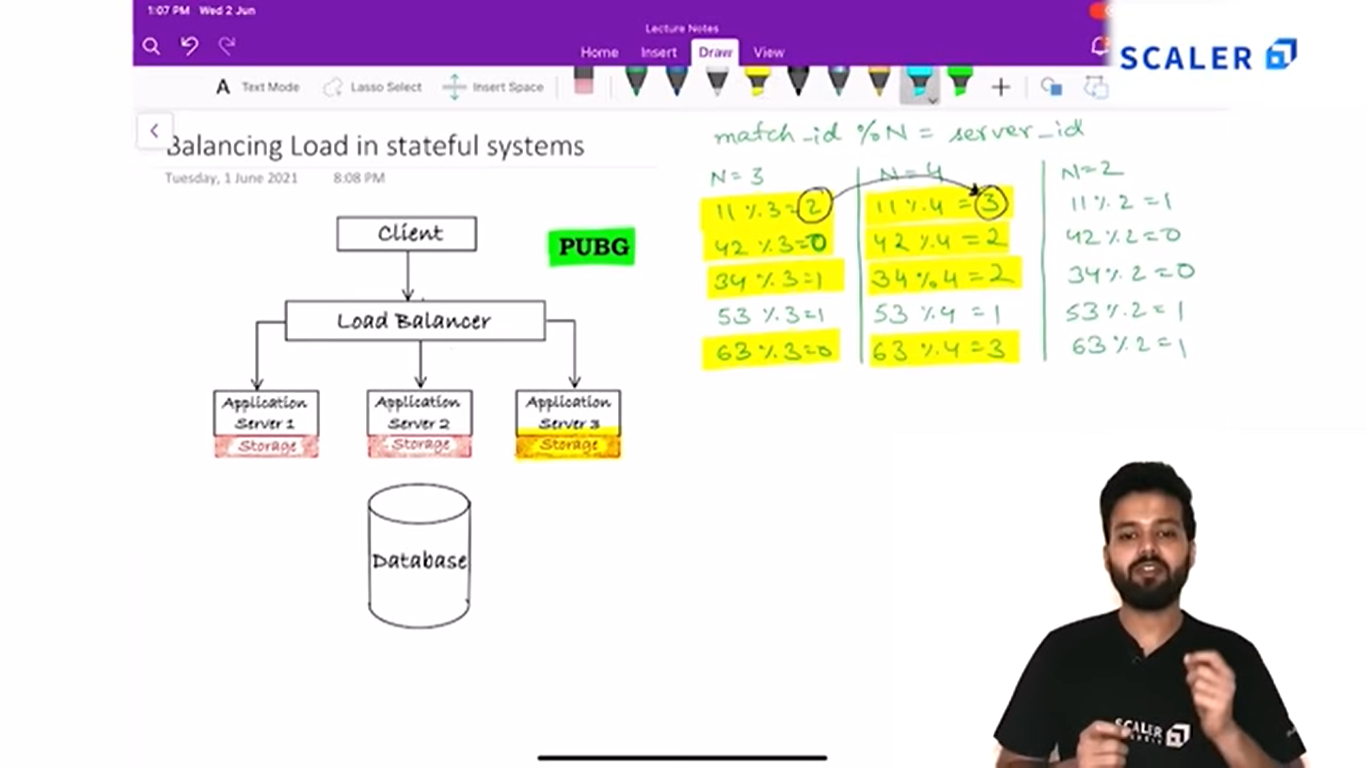 1:07 PM Wed 2 Jun
Lecture Notes
Home Insert Draw View
SCALER
A Text Mode Lasso Select Insert Space
Balancing Load in stateful systems
Tuesday, 1 June 2021 8:08 PM
Client
PUBG
Load Balancer
Application Server 1
Storage
Application Server 2
Storage
Application Server 3
Storage
Database
match_id % N = server_id
N=3
11 % 3=2
42 % 3=0
34 % 3=1
53 % 3=1
63 % 3=0
N=4
11 % 4 =3
42 % 4 =2
34 % 4 =2
53 % 4 =1
63 % 4 =3
N=2
11 % 2 =1
42 % 2=0
34 % 2 =0
53 % 2 = 1
63 % 2 =1
SCALER